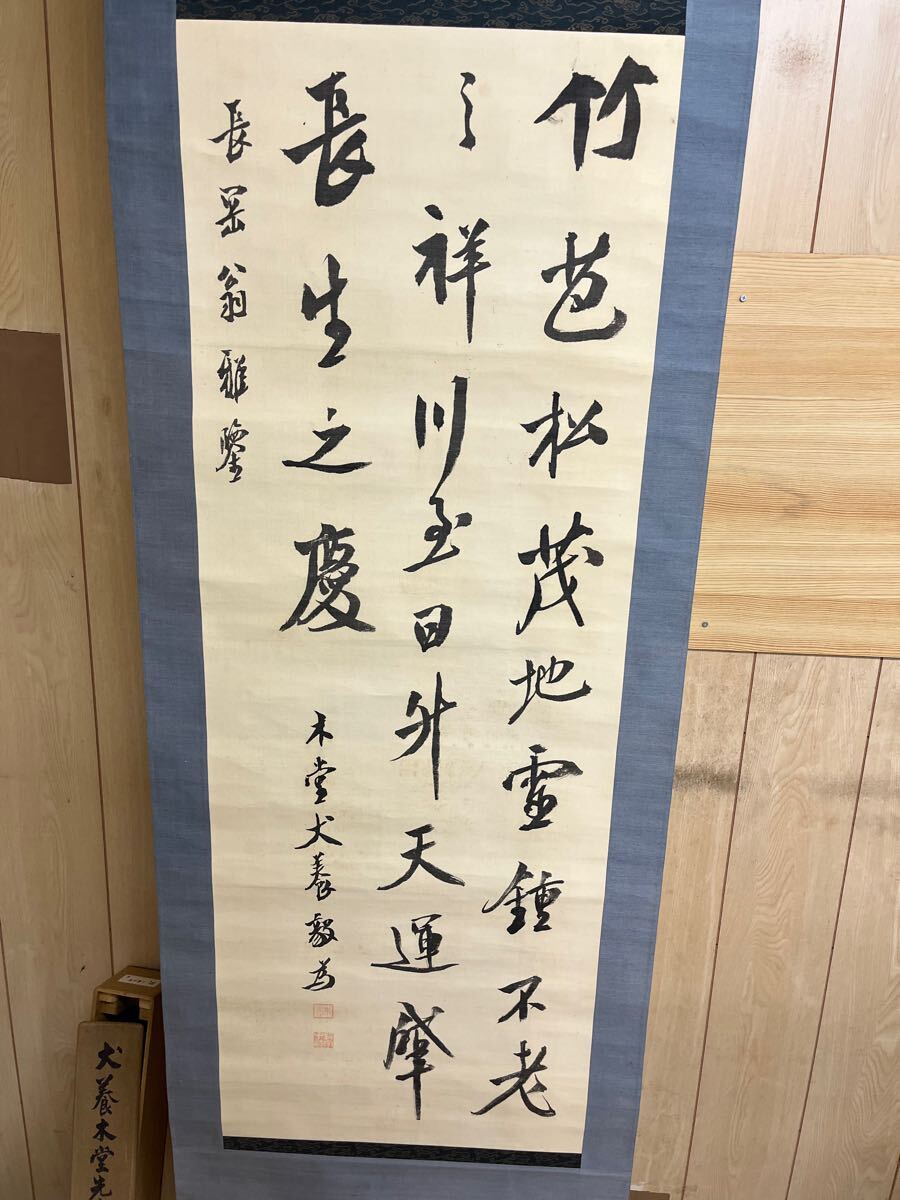 竹苞松茂地靈鍾不老
之祥川至日升天運肇
長生之慶
木堂犬養毅為
長岳翁雅鑒
犬養木堂先